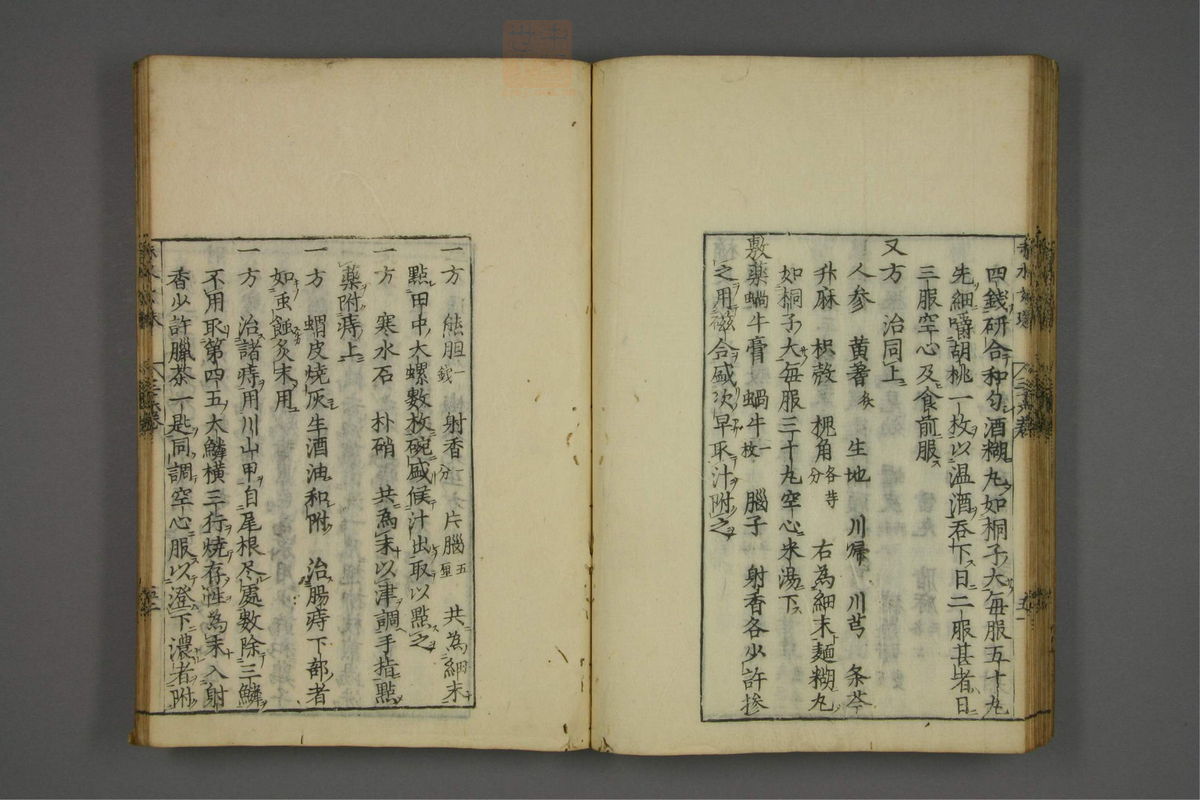 四錢研合和勻酒糊丸如桐子大每服五十丸
先細嚼胡桃一枚以温酒吞下日二服甚者日
三服空心及食前服
又方 治同上
人參 黄耆 生地 川歸 川芎 条芩
升麻 枳殻 槐角各等分 右為細末麺糊丸
如桐子大每服三十丸空心米湯下
敷藥蝸牛膏 蝸牛一枚 腦子 射香各少許摻
之用磁合盛次早取汁附之
一方 熊胆一錢 射香二分 片腦五厘 共為細末
點田中大螺數枚碗盛候汁出取以點之
一方 寒水石 朴硝 共為末以津調手指點
藥附痔上
一方 蝟皮燒灰生酒油和附 治腸痔下部者
如虫蝕炙末用
一方 治諸痔用川山甲自尾根尽處數除三鱗
不用取第四五大鱗橫三行燒存性為末入射
香少許臘茶一匙同調空心服以澄下濃者附